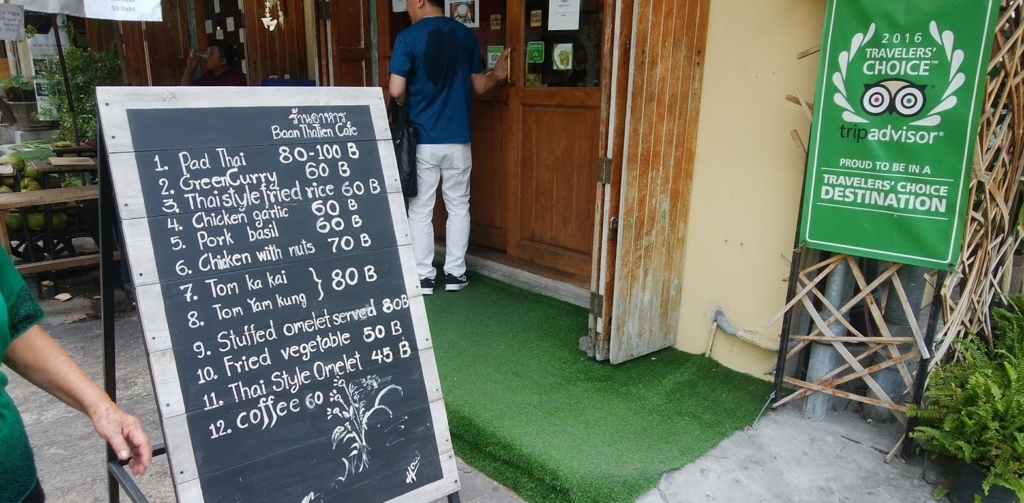 ร้านอาหาร
Baan Thatien Cafe
1. Pad Thai 80-100 B
2. Green Curry 60 B
3. Thai style fried rice 60 B
4. Chicken garlic 60 B
5. Pork basil 60 B
6. Chicken with nuts 70 B
7. Tom ka kai
8. Tom Yam kung } 80 B
9. Stuffed omelet served 80B
10. Fried vegetable 50 B
11. Thai Style Omelet 45 B
12. coffee 60
2016
TRAVELERS'
CHOICE™
tripadvisor®
PROUD TO BE IN A
TRAVELERS' CHOICE
DESTINATION